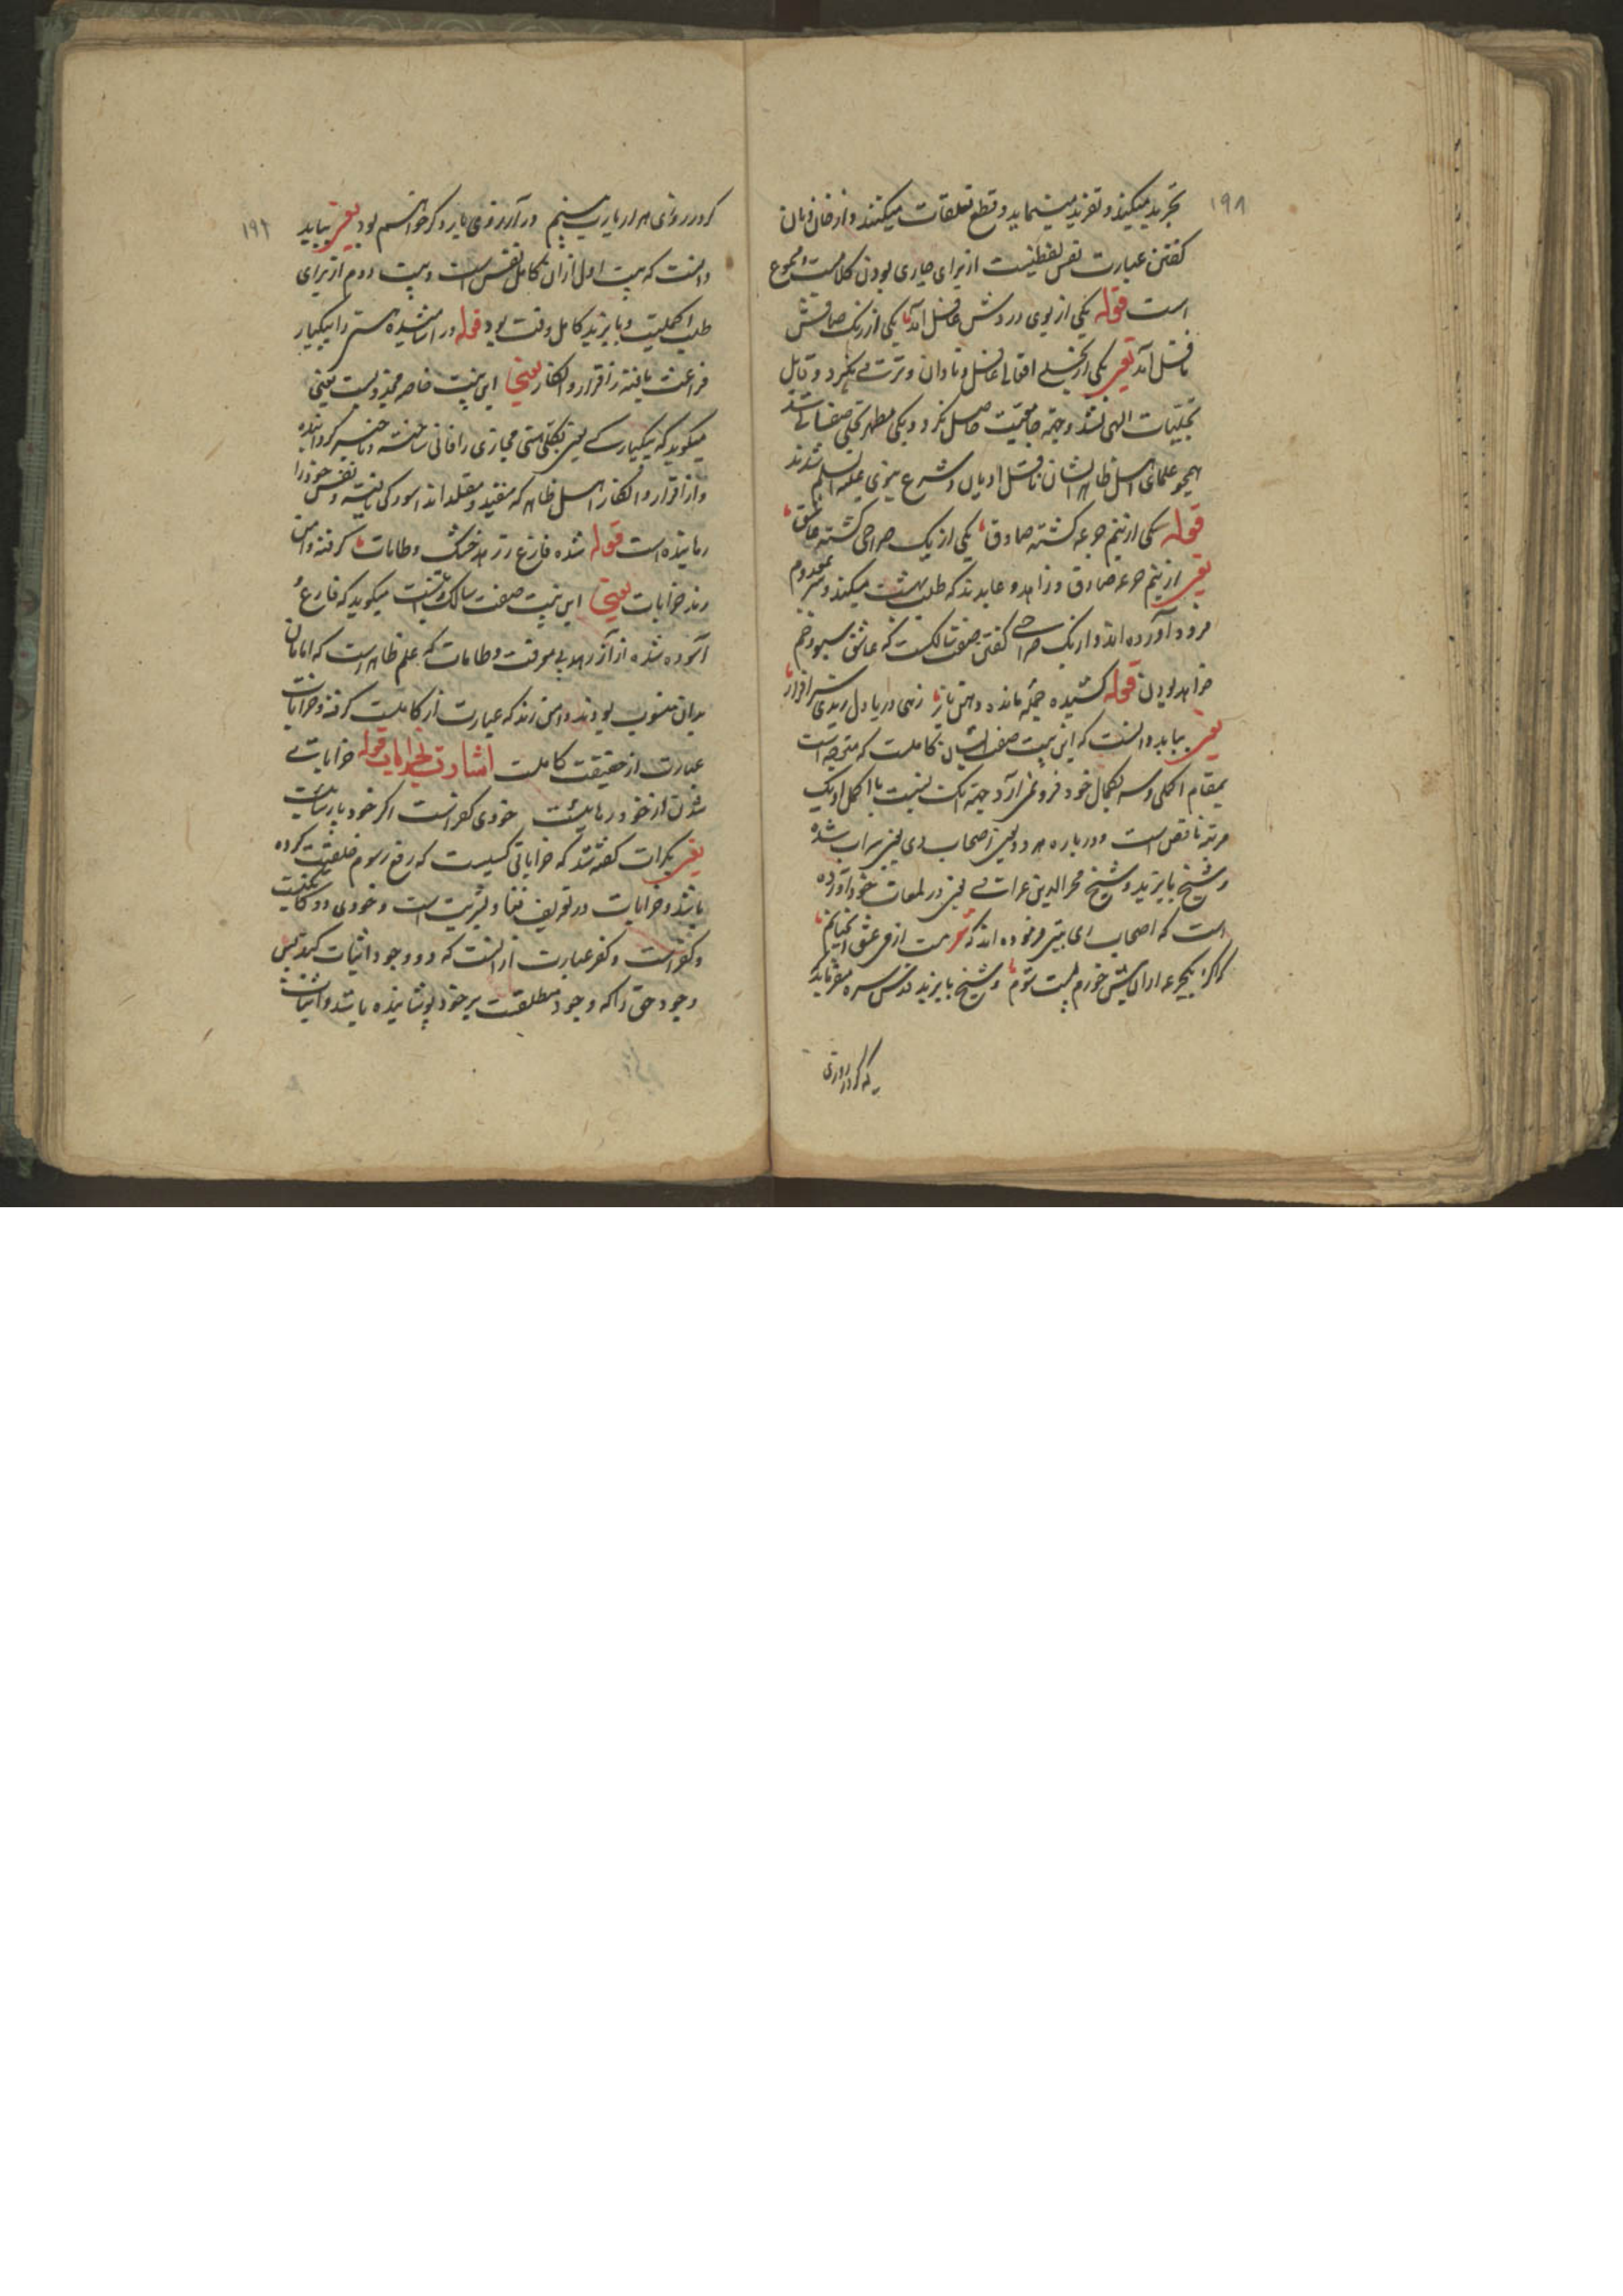 ۱۹۸
تجرید میکند و تفرید مینماید و قطع تعلقات میکنند و از خان و مان
کفتن عبارت نفس لفظیست از برای جاری بودن کلامست و مجموع
است قوله یکی از بوی دردش عاقل آمد یکی از رنک صافش
ناقل آمد یعنی یکی از تجلی افعالی عاقل و نادان و نکرد و قابل
تجلیات الهی نشد و جهة جامعیت حاصل نکرد و یکی مظهر تجلی صفاتی شد
همچو علمای اهل ظاهر ایشان ناقل ادیان و شرع نبوی علیه السلم شدند
قوله یکی از نیم جرعه کشته صادق یکی از یک صراحی کشته عاشق
یعنی از نیم جرعه صادق و زاهد و عابدند که طلب بهشت میکند و سر
فرود آورده اند و از یک صراحی کفتن صفت سالکست که عاشق سبو و خم
خواهد بودن قوله کشیده جمله مانده دهن باز زهی دریا دل رندی سرافراز
یعنی بباید دانست که این بیت صفت کاملست که متوجه است
بمقام اکملی و سر بکمال خود فرو نمی آرد جهة آنک نسبت با اکمل او یک
مرتبه ناقص است و درباره هر دو یعنی اصحاب می یعنی سیراب شده
و شیخ بایزید و شیخ فخر الدین عراقی یعنی در لمعات خود آورده
است که اصحاب فرموده اند که شعر مست از می عشق آنچنانم
که اکر یکجرعه ازان بیش خورم نیست شوم و شیخ بایزید قدس سره میفرماید
که کر در روزی
۱۹۲
کر در روزی هزار بارت بینم در آرزوی بار دکر خواهم بود یعنی بباید
دانست که بیت اول ازان کامل نفس است و بیت دوم از برای
طلب اکملیت و بایزید کامل وقت بود قوله در آشامیده هستی را بیکبار
فراغت یافته ز اقرار و انکار یعنی این بیت خاصه مجذوبست یعنی
میکوید که بیکبارکی یعنی بکلی هستی مجازی را فانی ساخته و ناچیز کردانیده
و از اقرار و انکار اهل ظاهر که مقید و مقلد اند آسودکی یافته و نفس خود را
رهانیده است قوله شده فارغ ز زهد خشک و طامات کرفته دامن
رند خرابات یعنی این بیت صفت سالک میکوید که فارغ و
آسوده شده از آن زهد بی معرفت و طامات که علم ظاهر است که امامان
بدان منسوب بودند و دامن رند که عبارت از کاملست کرفته و خرابات
عبارت از حقیقت کاملست اشارت بخرابات قوله خراباتی
شدن از خود رهائیست خودی کفر است اکر خود پارسائیست
یعنی بکرات کفته شد که خراباتی کسیست که رفع رسوم خلقیت کرده
باشد و خرابات در تعریف فنا و بشریت است و خودی
و کفر است و کفر عبارت از آنست که دو وجود اثبات کند پس
وجود حق را که وجود مطلقست بر خود پوشانیده باشد و اثبات